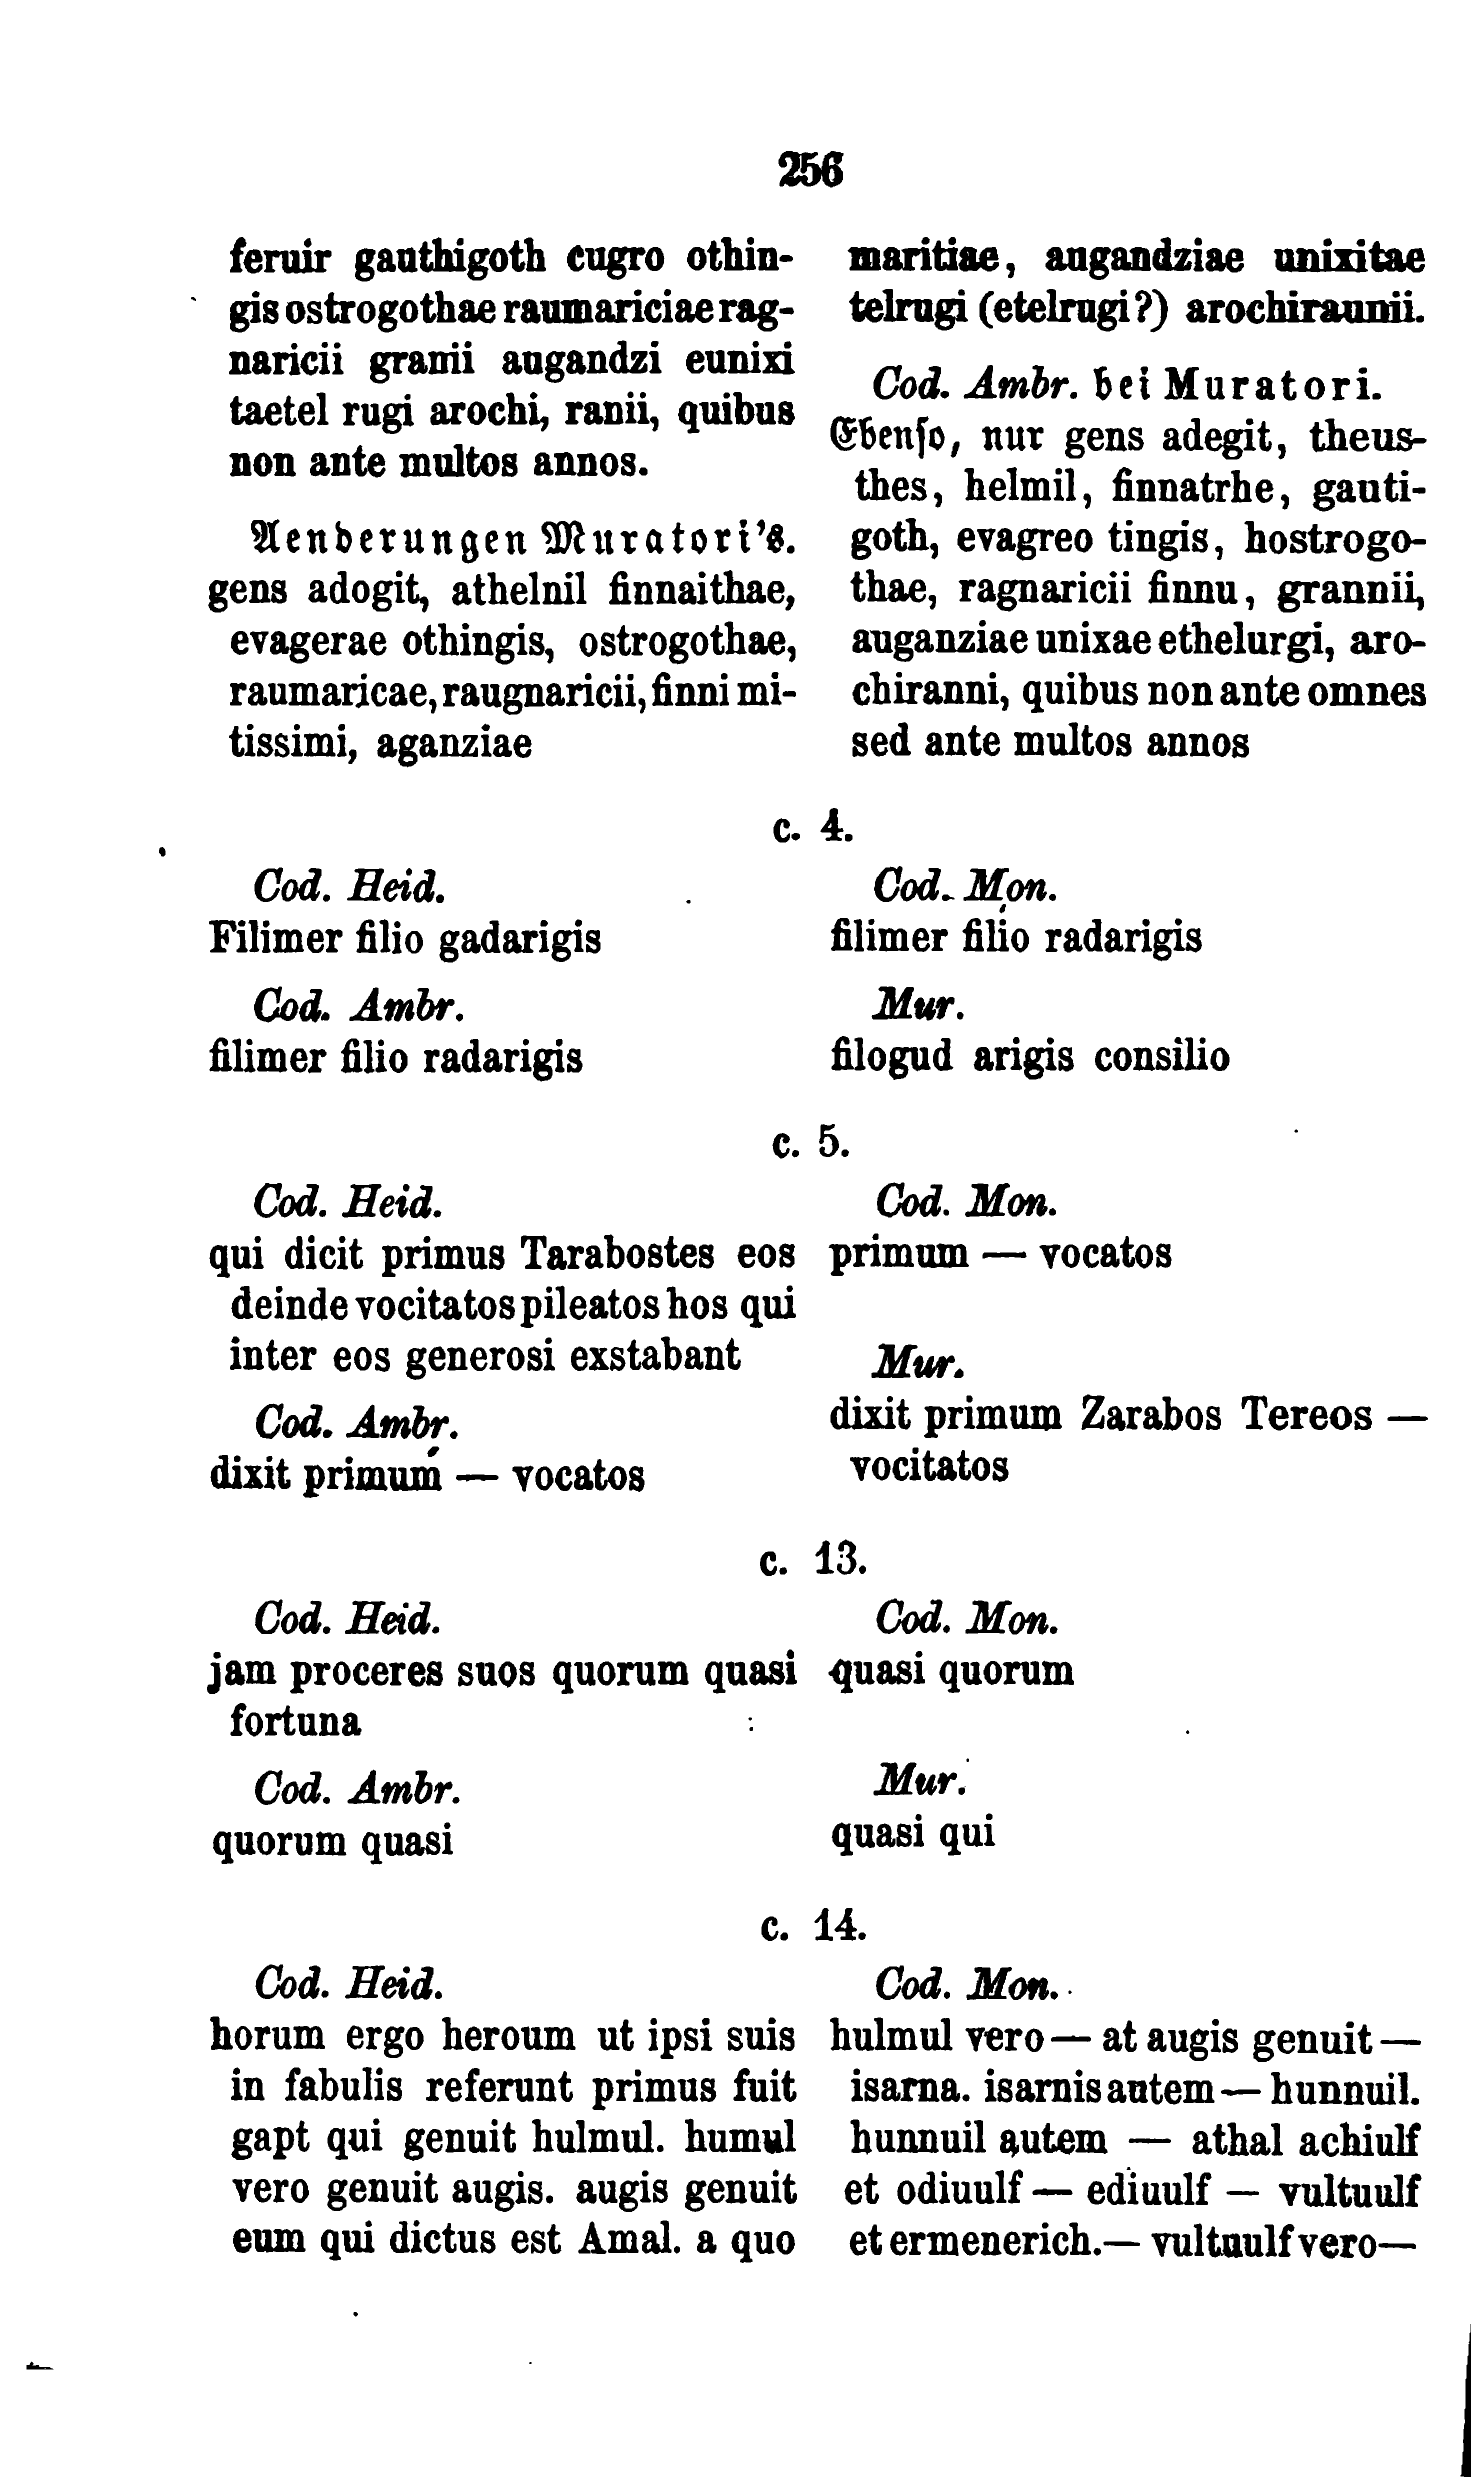 256
feruir gauthigoth cugro othin-
gis ostrogothae raumariciae rag-
naricii granii augandzi eunixi
taetel rugi arochi, ranii, quibus
non ante multos annos.
Aenderungen Muratori's.
gens adogit, athelnil finnaithae,
evagerae othingis, ostrogothae,
raumaricae, raugnaricii, finni mi-
tissimi, aganziae
maritiae, augandziae unixitae
telrugi (etelrugi?) arochiraunii.
Cod. Ambr. bei Muratori.
Ebenso, nur gens adegit, theus-
thes, helmil, finnatrhe, gauti-
goth, evagreo tingis, hostrogo-
thae, ragnaricii finnu, grannii,
auganziae unixae ethelurgi, aro-
chiranni, quibus non ante omnes
sed ante multos annos
c. 4.
Cod. Heid.
Filimer filio gadarigis
Cod. Ambr.
filimer filio radarigis
Cod. Mon.
filimer filio radarigis
Mur.
filogud arigis consilio
c. 5.
Cod. Heid.
qui dicit primus Tarabostes eos
deinde vocitatos pileatos hos qui
inter eos generosi exstabant
Cod. Ambr.
dixit primum — vocatos
Cod. Mon.
primum — vocatos
Mur.
dixit primum Zarabos Tereos —
vocitatos
c. 13.
Cod. Heid.
jam proceres suos quorum quasi
fortuna
Cod. Ambr.
quorum quasi
Cod. Mon.
quasi quorum
Mur.
quasi qui
c. 14.
Cod. Heid.
horum ergo heroum ut ipsi suis
in fabulis referunt primus fuit
gapt qui genuit hulmul. humul
vero genuit augis. augis genuit
eum qui dictus est Amal. a quo
Cod. Mon.
hulmul vero — at augis genuit —
isarna. isarnis autem — hunnuil.
hunnuil autem — athal achiulf
et odiuulf — ediuulf — vultuulf
et ermenerich. — vultuulf vero —